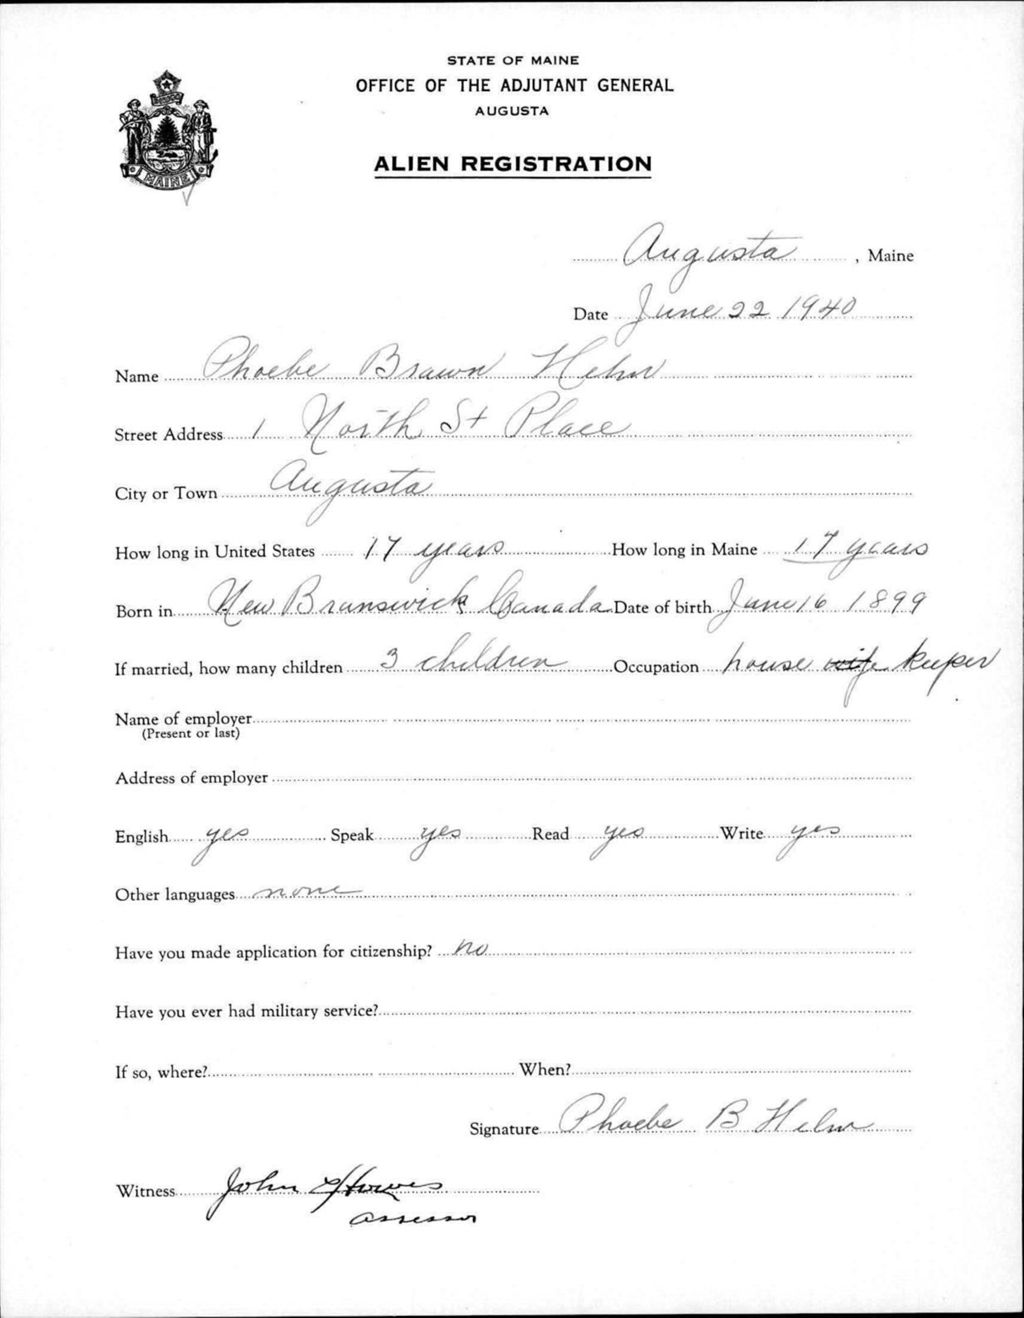 STATE OF MAINE
OFFICE OF THE ADJUTANT GENERAL
AUGUSTA
ALIEN REGISTRATION
MAINE
Augusta, Maine
Date June 22 1940
Name Phoebe Brawn Helm
Street Address 1 North St Place
City or Town Augusta
How long in United States 17 years How long in Maine 17 years
Born in New Brunswick Canada Date of birth June 16 1899
If married, how many children 3 children Occupation house wife keeper
Name of employer
(Present or last)
Address of employer
English yes Speak yes Read yes Write yes
Other languages none
Have you made application for citizenship? no
Have you ever had military service?
If so, where? When?
Signature Phoebe B Helm
Witness John Howes
assessor